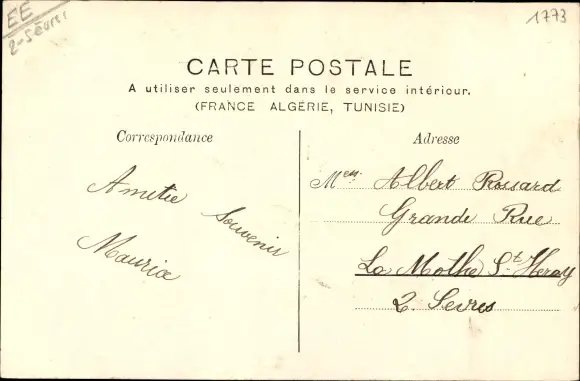 EE
2-Sèvres
1773
CARTE POSTALE
A utiliser seulement dans le service intérieur.
(FRANCE ALGÉRIE, TUNISIE)
Correspondance
Amitié
Souvenir
Maurice
Adresse
Men Albert Rossard
Grande Rue
La Mothe St. Heray
2. Sevres